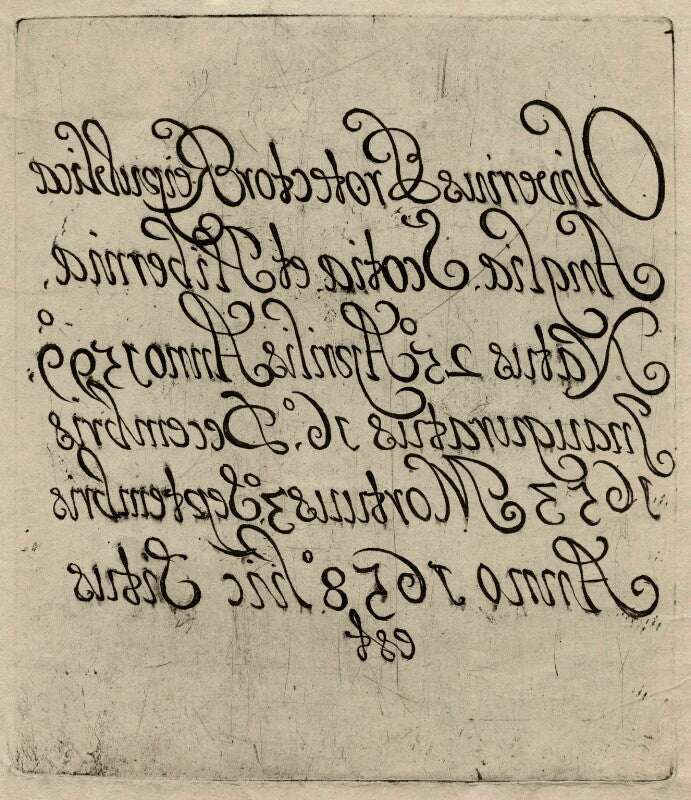 Oliverius Protector Reipublicæ
Angliæ Scotiæ et Hiberniæ,
Natus 25° Aprilis Anno 1599°.
Inauguratus 16°. Decembris
1653 Mortuus 3 Septembris
Anno 1658° hic Situs
est